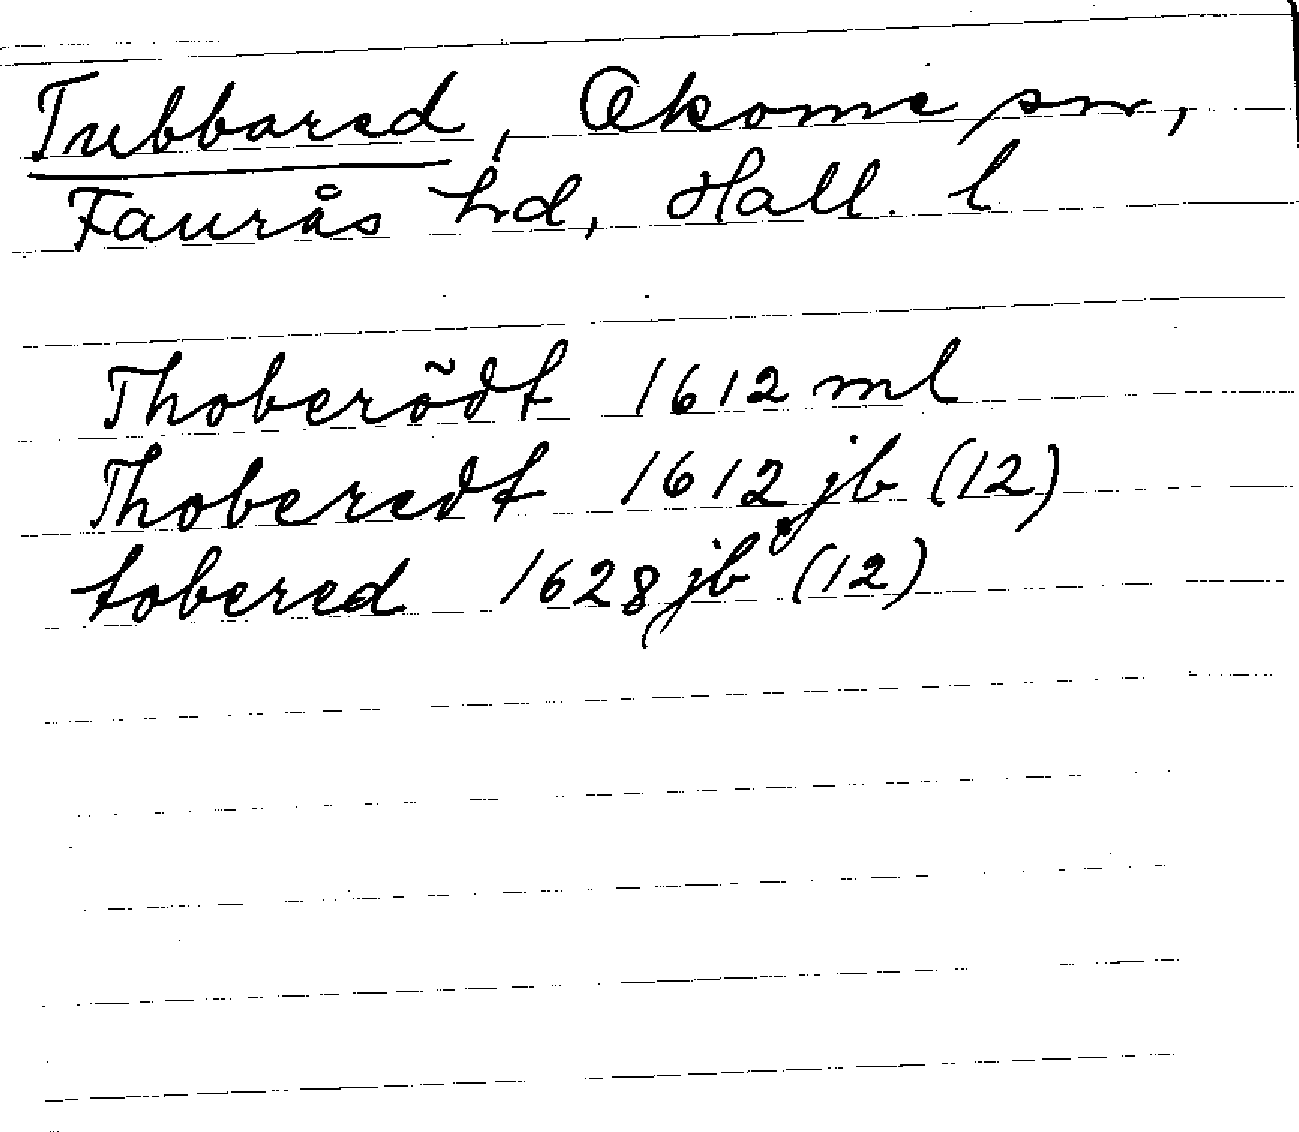 Tubbared, Okome sn,
Faurås hd, Hall. l
Thoberõdt 1612 ml
Thoberedt 1612 jb (12)
tobered 1628 jb (12)